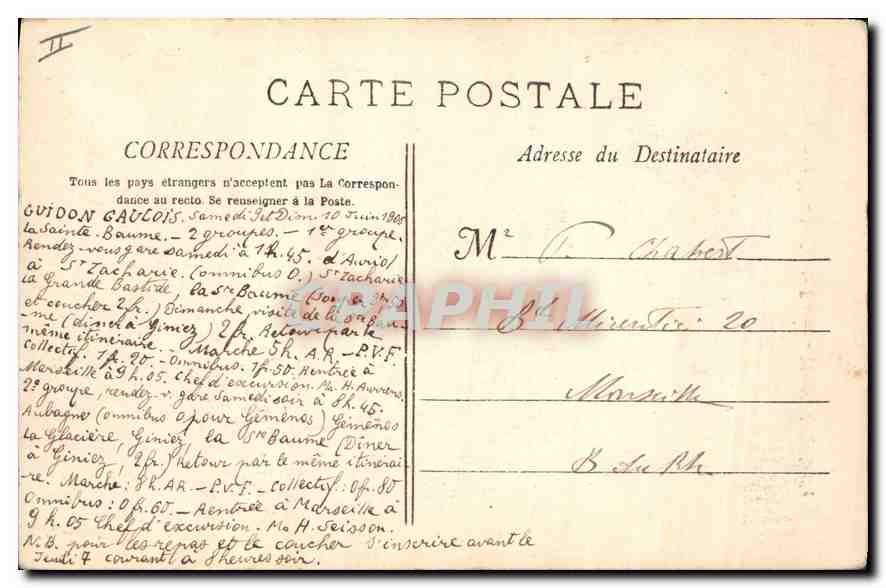 II
CARTE POSTALE
CORRESPONDANCE
Tous les pays étrangers n'acceptent pas La Correspon-
dance au recto. Se renseigner à la Poste.
Adresse du Destinataire
GUIDON GAULOIS. Samedi 9 et Dim. 10 Juin 1905
La Sainte-Baume. - 2 groupes. - 1er groupe.
Rendez-vous gare samedi à 1h.45. d'Auriol
à St Zacharie. (omnibus 0.) St Zacharie
la Grande Bastide, la Ste Baume (souper
et coucher 2 fr.) Dimanche, visite de la Ste Bau-
me (dîner à Giniez) 2 fr. Retour par le
même itinéraire. - Marche 5h. A.R. - P.V.F.
Collectif. 1 fr. 20. - Omnibus. 1 f. 50. Rentrée à
Marseille à 9h.05. Chef d'excursion. Mr H.
2e groupe, rendez-v. gare Samedi soir à 8h.45.
Aubagne (omnibus 0 pour Gémenos) Gémenos
La Glacière, Giniez, la Ste Baume (Dîner
à Giniez, 2 fr.) Retour par le même itinérai-
re. Marche: 8h. A.R. - P.V.F. - Collectif: 0 f. 80
Omnibus: 0 f. 60. - Rentrée à Marseille à
9h.05 Chef d'excursion. Mr H. Seisson.
N.B. pour les repas et le coucher s'inscrire avant le
Jeudi 7 courant à 8 heures soir.
Mr P. Chabert
20
Marseille
B du Rh
CPAPHIL